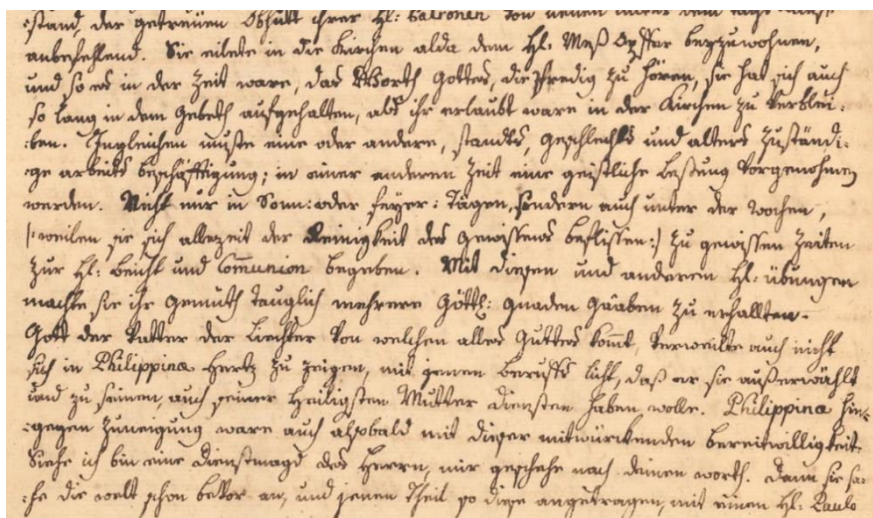 :stand, der getreuen Obhutt ihrer Hl: Patronen von neuen
anbefehlend. Sie eilete in die Kirchen alda dem Hl: Meß Opffer beyzuwohnen,
und so es in der Zeit ware, das Worth Gottes, die Predig zu hören, sie hat sich auch
so lang in dem Gebeth aufgehalten, als ihr erlaubt ware in der Kirchen zu verblei:
:ben. Ingleichen muste eine oder andere, standts, geschlechts und alters zuständi:
:ge arbeits beschäfftigung; in einer anderen Zeit eine geistliche Leßung vorgenohmen
werden. Nicht nur in Sonn: oder feyer: Tägen, sondern auch unter der wochen,
/: weilen sie sich allezeit der Reinigkeit des gewissens beflissen :/ zu gewissen Zeiten
zur Hl: Beicht und Communion begeben. Mit diesen und anderen Hl: übungen
machte sie ihr gemüth tauglich mehrere Göttl: gnaden gaaben zu erhallten.
Gott der Vatter der Liechter von welchen alles guttes komt, verweilte auch nicht
sich in Philippinæ Hertz zu zeigen, mit jenen beruffs licht, daß er sie außerwählt
und zu seinen, auch seiner Heiligsten Mutter diensten haben wolle. Philippinæ hin:
:gegen zuneigung ware auch alsobald mit dieser mitwürckenden bereitwilligkeit.
Siehe ich bin eine dienstmagd des Herrn, mir geschehe nach deinen worth. dann sie sa:
:he die welt schon bevor an, und jenen theil so diese angetragen, mit einen Hl: Paulo